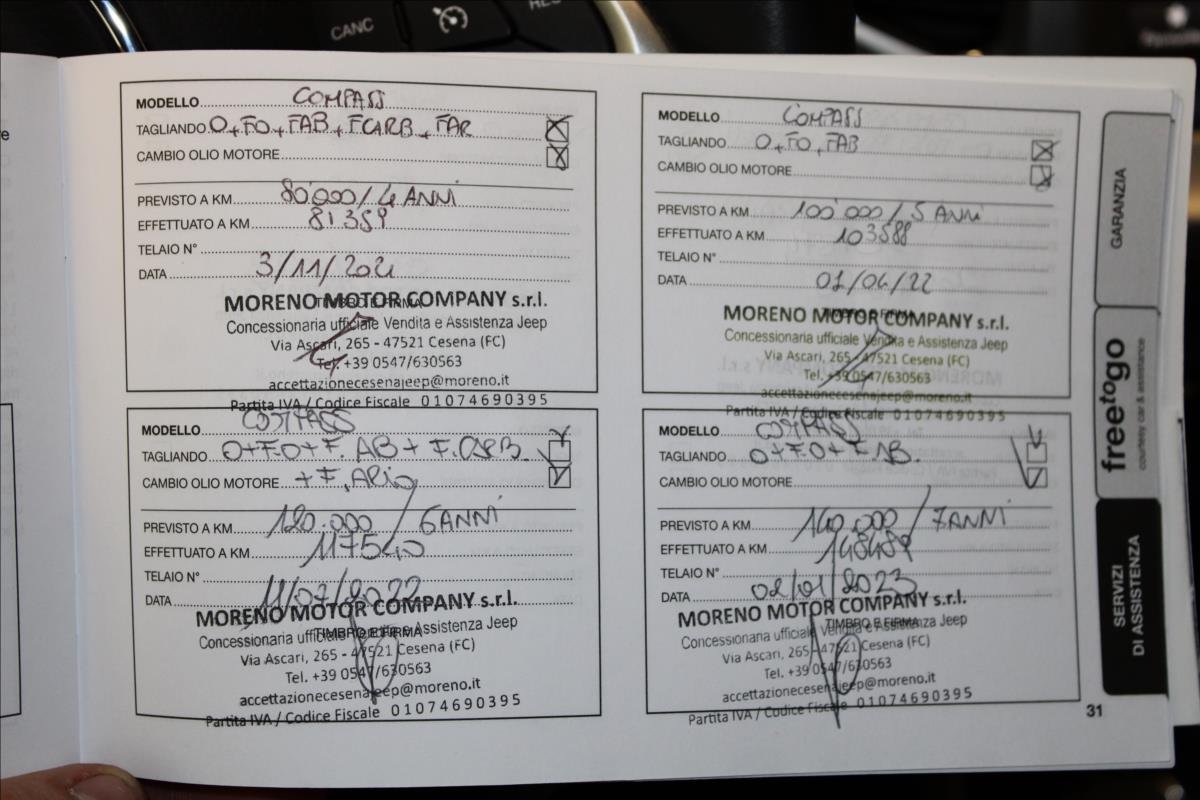 CANC
RES
MODELLO COMPASS
TAGLIANDO O+FO+FAB+FCARB+FAR
CAMBIO OLIO MOTORE
PREVISTO A KM 80'000/4 ANNI
EFFETTUATO A KM 81359
TELAIO N°
DATA 3/11/2021
TIMBRO E FIRMA
MORENO MOTOR COMPANY s.r.l.
Concessionaria ufficiale Vendita e Assistenza Jeep
Via Ascari, 265 - 47521 Cesena (FC)
Tel. +39 0547/630563
accettazionecesenajeep@moreno.it
Partita IVA / Codice Fiscale 01074690395
MODELLO COMPASS
TAGLIANDO O+FO+FAB
CAMBIO OLIO MOTORE
PREVISTO A KM 100'000/5 ANNI
EFFETTUATO A KM 103588
TELAIO N°
DATA 01/04/22
TIMBRO E FIRMA
MORENO MOTOR COMPANY s.r.l.
Concessionaria ufficiale Vendita e Assistenza Jeep
Via Ascari, 265 - 47521 Cesena (FC)
Tel. +39 0547/630563
accettazionecesenajeep@moreno.it
Partita IVA / Codice Fiscale 01074690395
MODELLO COMPASS
TAGLIANDO O+F.O+F.AB+F.CARB.
CAMBIO OLIO MOTORE +F.ARIA
PREVISTO A KM 120.000 / 6ANNI
EFFETTUATO A KM 117540
TELAIO N°
DATA 11/07/2022
TIMBRO E FIRMA
MORENO MOTOR COMPANY s.r.l.
Concessionaria ufficiale Vendita e Assistenza Jeep
Via Ascari, 265 - 47521 Cesena (FC)
Tel. +39 0547/630563
accettazionecesenajeep@moreno.it
Partita IVA / Codice Fiscale 01074690395
MODELLO COMPASS
TAGLIANDO O+F.O+F.AB.
CAMBIO OLIO MOTORE
PREVISTO A KM 140.000 / 7ANNI
EFFETTUATO A KM 148489
TELAIO N°
DATA 02/01/2023
TIMBRO E FIRMA
MORENO MOTOR COMPANY s.r.l.
Concessionaria ufficiale Vendita e Assistenza Jeep
Via Ascari, 265 - 47521 Cesena (FC)
Tel. +39 0547/630563
accettazionecesenajeep@moreno.it
Partita IVA / Codice Fiscale 01074690395
GARANZIA
freetogo
courtesy car & assistance
SERVIZI
DI ASSISTENZA
31